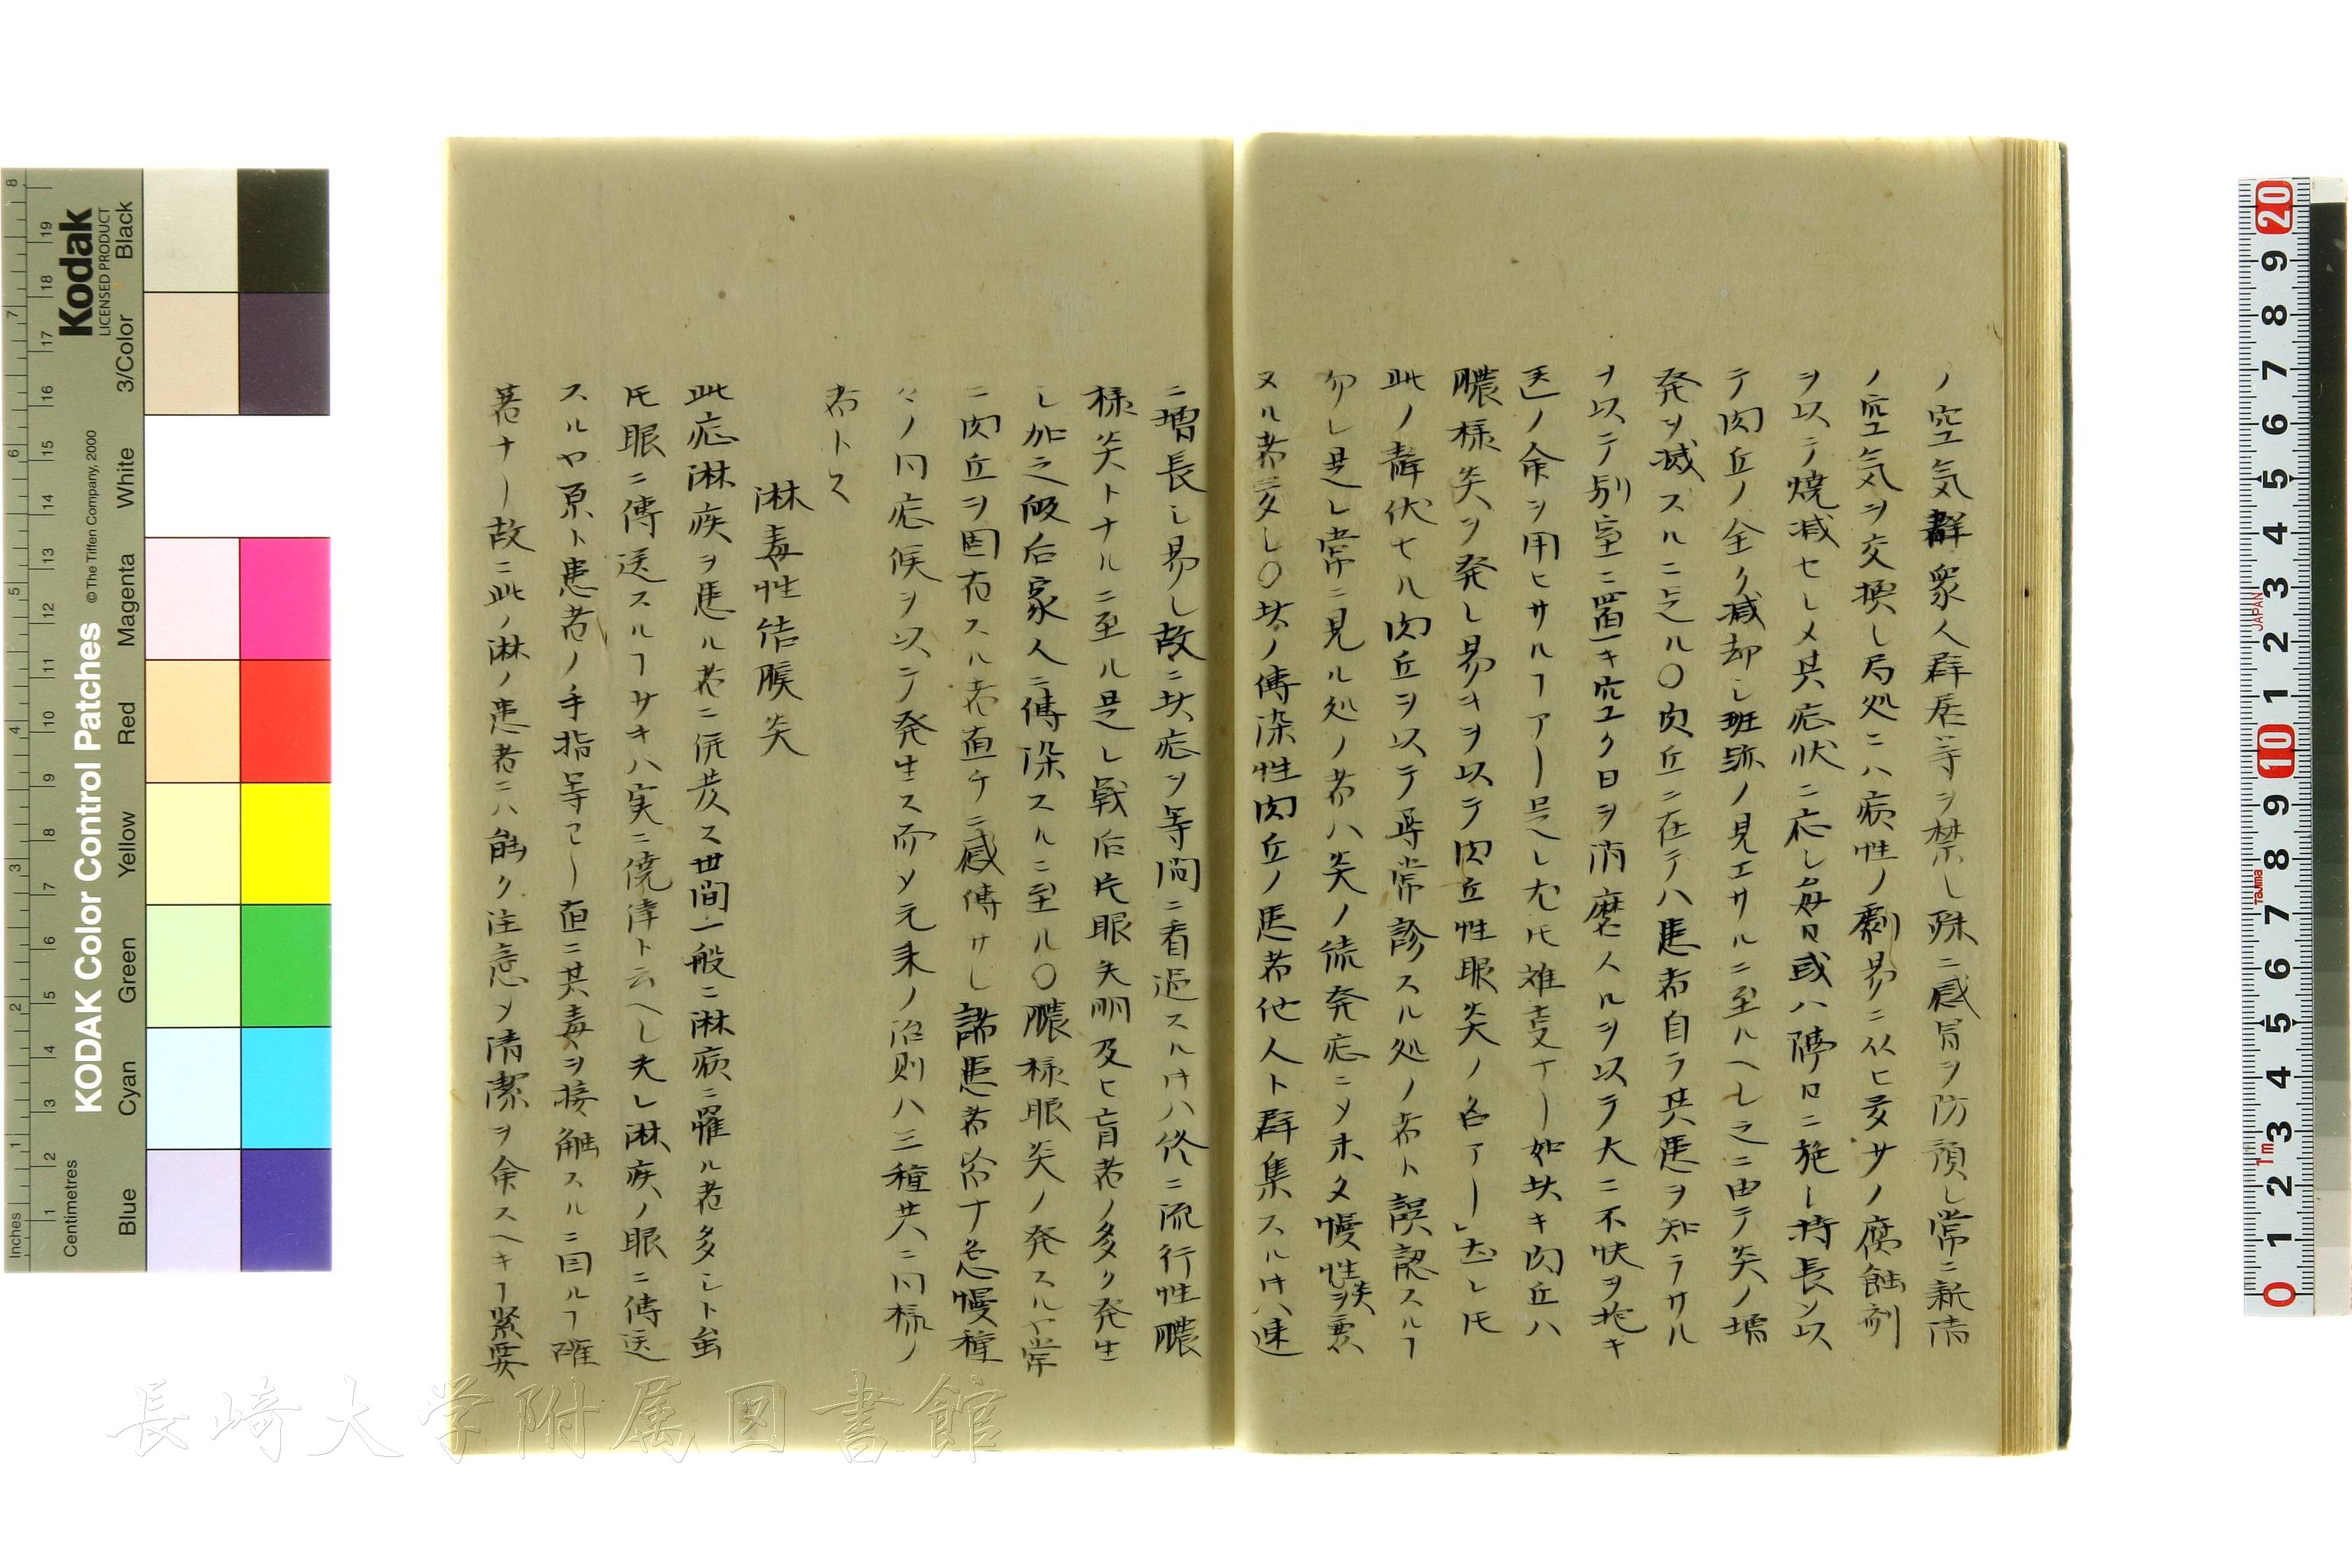 ノ空気群衆人群居等ヲ禁シ殊ニ感冒ヲ防預シ常ニ新清
ノ空気ヲ交換シ局処ニハ病性ノ劇易ニ従ヒ多少ノ腐蝕剤
ヲ以テ焼減セシメ其症状ニ応シ毎日或ハ隔日ニ施シ持長シ以
テ肉丘ノ全ク減却シ斑跡ノ見エサルニ至ルヘシ之ニ由テ炎ノ増
発ヲ減スルニ足ル〇肉丘ニ在テハ患者自ラ其患ヲ知ラサル
ヲ以テ別室ニ置キ空ク日ヲ消磨スルヲ以テ大ニ不快ヲ抱キ
医ノ命ヲ用ヒサルヿアー是レ尤𪜈難事ナー如此キ肉丘ハ
膿様炎ヲ発シ易キヲ以テ肉丘性眼炎ノ名アー」然レ𪜈
此ノ静伏セル肉丘ヲ以テ尋常診スル処ノ者ト誤認スルヿ
勿レ是レ常ニ見ル処ノ者ハ炎ノ続発症ニメ未タ慢性炎ヲ兼
ヌル者多シ〇此ノ傳染性肉丘ノ患者他人ト群集スル𪜈ハ速
ニ増長シ易シ故ニ此症ヲ等閒ニ看過スル𪜈ハ終ニ流行性膿
様炎トナルニ至ル是レ戦后片眼失明及ヒ盲者ノ多ク発生
シ加之皈后家人ニ傳染スルニ至ル〇膿様眼炎ノ発スルヤ常
ニ肉丘ヲ固有スル者直チニ感傳サレ諸患者皆ナ急慢種
々ノ同症候ヲ以テ発生ス而メ元来ノ治則ハ三種共ニ同様ノ
者トス
淋毒性結膜炎
此症淋疾ヲ患ル者ニ併発ス世間一般ニ淋病ニ罹ル者多シト虽
𪜈眼ニ傳送スルヿ少キハ実ニ僥倖ト云ヘシ夫レ淋疾ノ眼ニ傳送
スルヤ原ト患者ノ手指等ヨー直ニ其毒ヲ接触スルニ因ルヿ確
著ナー故ニ此ノ淋ノ患者ニハ能ク注意ヲ清潔ヲ命スヘキヿ緊要
長崎大学附属図書館
Kodak
LICENSED PRODUCT
KODAK Color Control Patches
© The Tiffen Company, 2000
Inches
Centimetres
Blue
Cyan
Green
Yellow
Red
Magenta
White
3/Color
Black